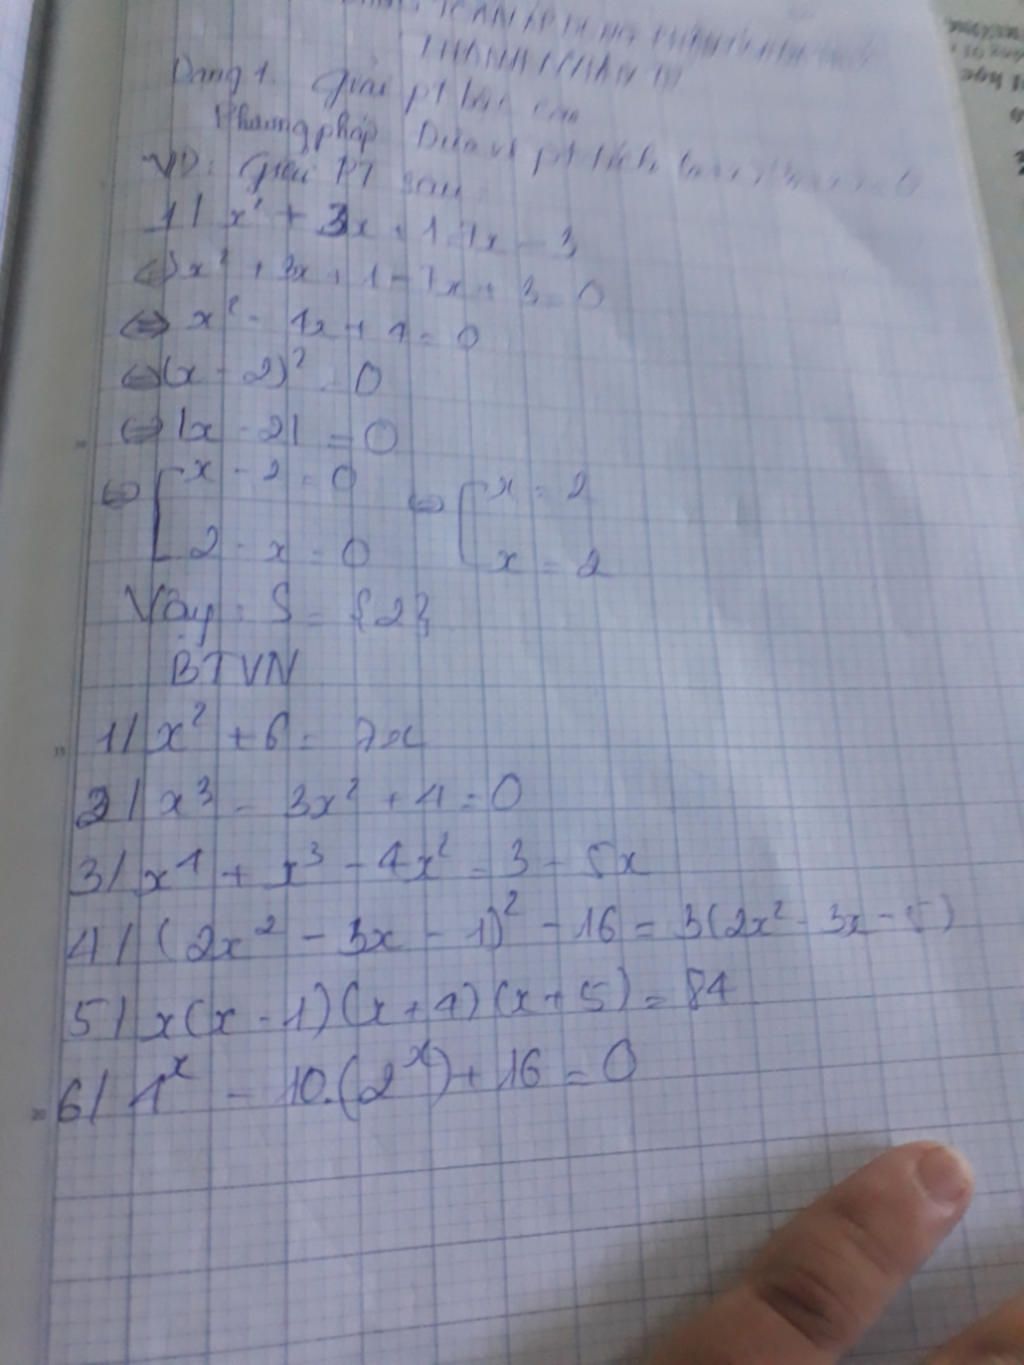 Dạng 1. Giải pt bậc cao
Phương pháp Đưa về pt tích
VD: Giải PT sau:
1/ x² + 3x + 1 = 7x - 3
<=> x² + 3x + 1 - 7x + 3 = 0
<=> x² - 4x + 4 = 0
<=> (x - 2)² = 0
<=> |x - 2| = 0
<=> [ x - 2 = 0 <=> [ x = 2
2 - x = 0 x = 2
Vậy: S = {2}
BTVN
1/ x² + 6 = 7x
2/ x³ - 3x² + 4 = 0
3/ x⁴ + x³ - 4x² = 3 - 5x
4/ (2x² - 3x - 1)² - 16 = 3(2x² - 3x - 5)
5/ x(x - 1)(x + 4)(x + 5) = 84
6/ 4ˣ - 10.(2ˣ) + 16 = 0